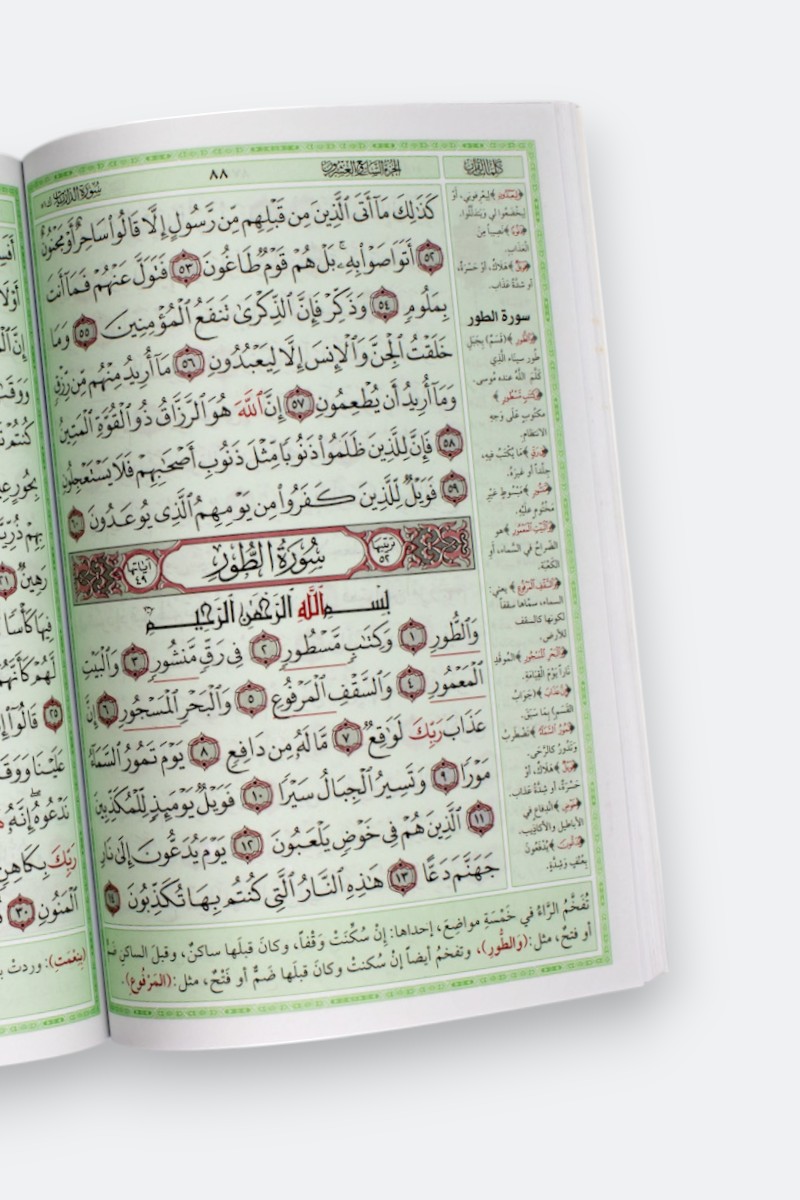 كلمات القرآن
الجزء السابع والعشرون
٨٨
سورة الذاريات
كَذَٰلِكَ مَآ أَتَى ٱلَّذِينَ مِن قَبْلِهِم مِّن رَّسُولٍ إِلَّا قَالُوا۟ سَاحِرٌ أَوْ مَجْنُونٌ
٥٢ أَتَوَاصَوْا۟ بِهِۦ ۚ بَلْ هُمْ قَوْمٌ طَاغُونَ ٥٣ فَتَوَلَّ عَنْهُمْ فَمَآ أَنتَ
بِمَلُومٍ ٥٤ وَذَكِّرْ فَإِنَّ ٱلذِّكْرَىٰ تَنفَعُ ٱلْمُؤْمِنِينَ ٥٥ وَمَا
خَلَقْتُ ٱلْجِنَّ وَٱلْإِنسَ إِلَّا لِيَعْبُدُونِ ٥٦ مَآ أُرِيدُ مِنْهُم مِّن رِّزْقٍ
وَمَآ أُرِيدُ أَن يُطْعِمُونِ ٥٧ إِنَّ ٱللَّهَ هُوَ ٱلرَّزَّاقُ ذُو ٱلْقُوَّةِ ٱلْمَتِينُ
٥٨ فَإِنَّ لِلَّذِينَ ظَلَمُوا۟ ذَنُوبًا مِّثْلَ ذَنُوبِ أَصْحَٰبِهِمْ فَلَا يَسْتَعْجِلُونِ
٥٩ فَوَيْلٌ لِّلَّذِينَ كَفَرُوا۟ مِن يَوْمِهِمُ ٱلَّذِى يُوعَدُونَ ٦٠
ترتيبها ٥٢ سُورَةُ الطُّورِ آياتها ٤٩
بِسْمِ ٱللَّهِ ٱلرَّحْمَٰنِ ٱلرَّحِيمِ
وَٱلطُّورِ ١ وَكِتَٰبٍ مَّسْطُورٍ ٢ فِى رَقٍّ مَّنشُورٍ ٣ وَٱلْبَيْتِ
ٱلْمَعْمُورِ ٤ وَٱلسَّقْفِ ٱلْمَرْفُوعِ ٥ وَٱلْبَحْرِ ٱلْمَسْجُورِ ٦ إِنَّ
عَذَابَ رَبِّكَ لَوَٰقِعٌ ٧ مَّا لَهُۥ مِن دَافِعٍ ٨ يَوْمَ تَمُورُ ٱلسَّمَآءُ
مَوْرًا ٩ وَتَسِيرُ ٱلْجِبَالُ سَيْرًا ١٠ فَوَيْلٌ يَوْمَئِذٍ لِّلْمُكَذِّبِينَ
١١ ٱلَّذِينَ هُمْ فِى خَوْضٍ يَلْعَبُونَ ١٢ يَوْمَ يُدَعُّونَ إِلَىٰ نَارِ
جَهَنَّمَ دَعًّا ١٣ هَٰذِهِ ٱلنَّارُ ٱلَّتِى كُنتُم بِهَا تُكَذِّبُونَ ١٤
﴿لِيَعْبُدُونِ﴾ لِيَعْرِفُوني، أوْ
لِيخضَعُوا لي ويَتذلَّلُوا.
﴿ذَنُوبًا﴾ نَصِيباً مِنَ
العَذاب.
﴿فَوَيْلٌ﴾ هَلاكٌ، أوْ حَسْرَةٌ،
أو شِدَّةُ عَذَاب.
سورة الطور
﴿وَالطُّورِ﴾ (قَسَمٌ) بِجَبَلِ
طُورِ سيناءَ الَّذِي
كَلَّمَ اللَّهُ عنده مُوسى.
﴿وَكِتَابٍ مَسْطُورٍ﴾
مَكتوبٍ عَلَى وَجهِ
الانتظامِ.
﴿فِي رَقٍّ﴾ مَا يُكْتَبُ فيهِ،
جِلْداً أو غَيرَهُ.
﴿مَنْشُورٍ﴾ مَبْسُوطٍ غَيْرِ
مَختُومٍ عَليْهِ.
﴿وَالْبَيْتِ الْمَعْمُورِ﴾ هو
الضُّراحُ في السَّماءِ، أو
الكَعْبَة.
﴿وَالسَّقْفِ الْمَرْفُوعِ﴾ يعني:
السماء، سمَّاها سقفاً
لكونها كالسقف
للأرض.
﴿وَالْبَحْرِ الْمَسْجُورِ﴾ المُوقَدِ
ناراً يَوْمَ القِيَامَةِ.
﴿إِنَّ عَذَابَ﴾ (جَوَابُ
القَسَمِ) بِمَا سَبَقَ.
﴿تَمُورُ السَّمَاءُ﴾ تَضْطَرِبُ
وَتَدُورُ كالرَّحَى.
﴿فَوَيْلٌ﴾ هَلَاكٌ، أوْ
حَسْرَةٌ، أو شِدَّةُ عَذَاب.
﴿خَوْضٍ﴾ اندِفاعٍ في
الأباطيل والأكاذيب.
﴿يُدَعُّونَ﴾ يُدْفَعُونَ
بِعُنْفٍ وَشِدَّةٍ.
تُفَخَّمُ الرَّاءُ في خَمْسَةِ مواضِعَ، إحداها: إنْ سُكِّنَتْ وَقْفاً، وكانَ قبلَها ساكنٌ، وقبلَ الساكنِ ضَمٌّ
أو فتحٌ، مثل: (وَالطُّورِ)، وتفخمُ أيضاً إنْ سكنت وكانَ قبلَها ضَمٌّ أو فَتْحٌ، مثل: (المَرْفُوعِ).